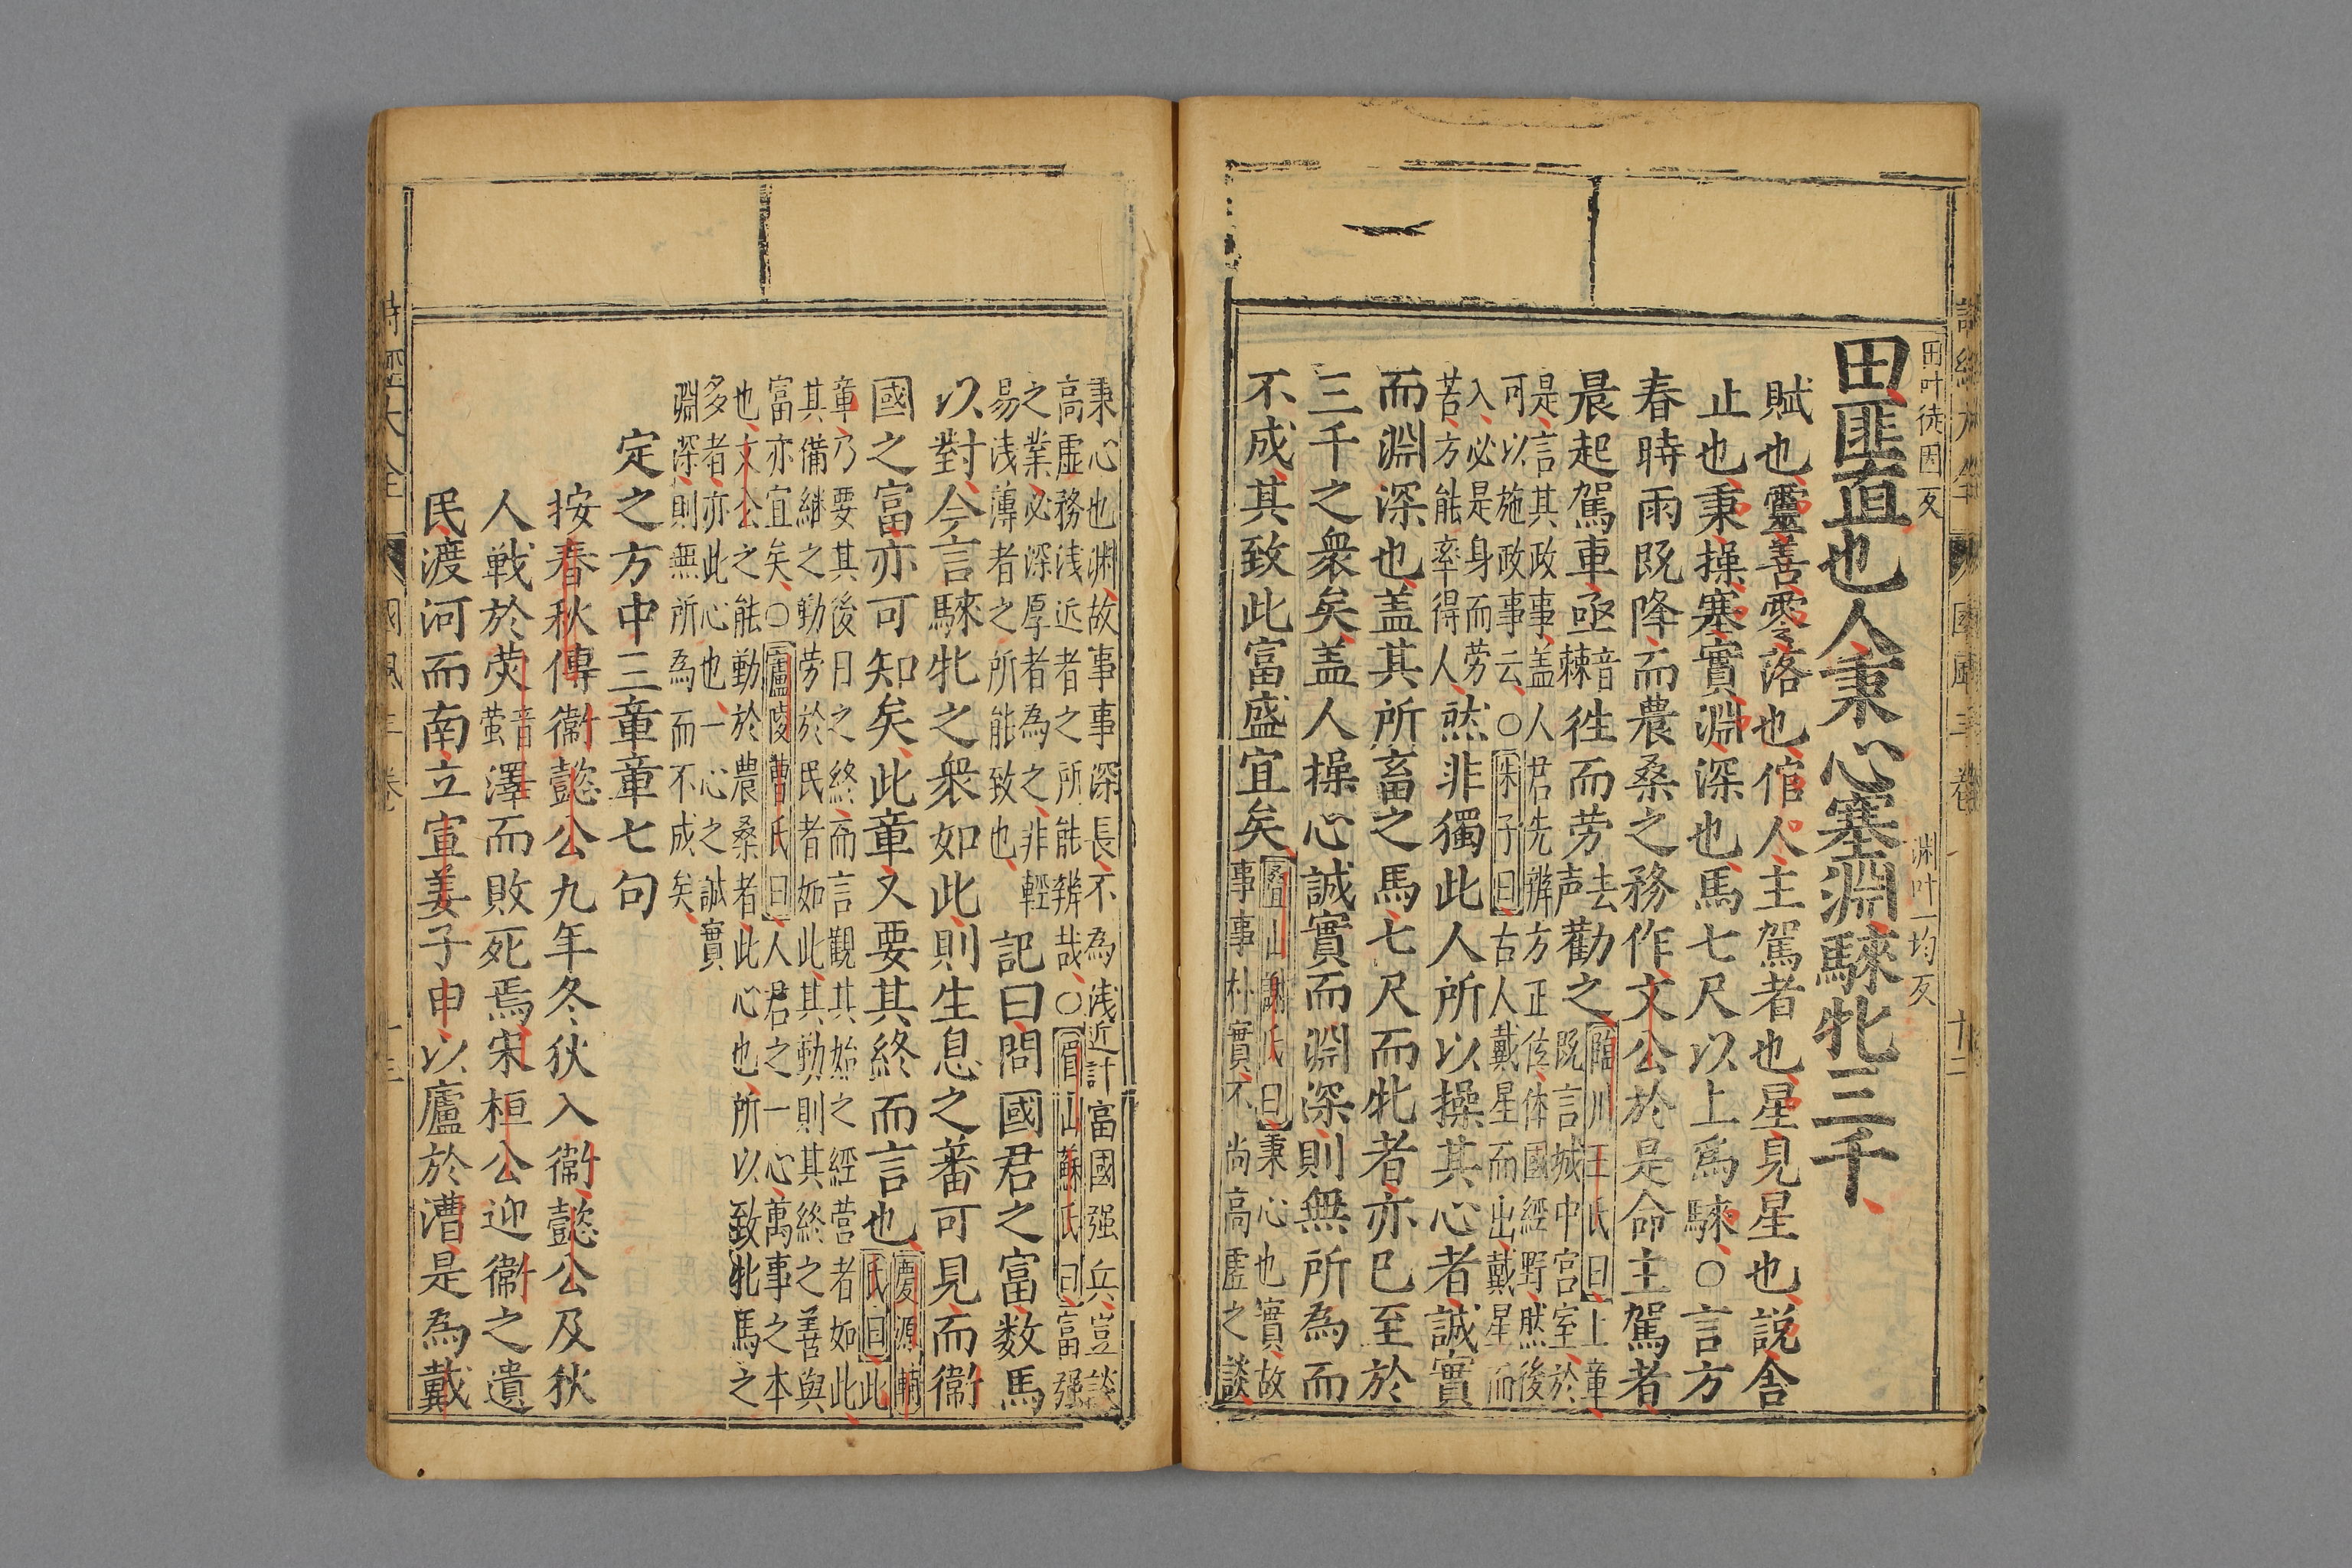 田叶徒因反
淵叶一均反
田匪直也人秉心塞淵騋牝三千
賦也靈善零落也倌人主駕者也星見星也說舍
止也秉操塞實淵深也馬七尺以上爲騋○言方
春時雨既降而農桑之務作文公於是命主駕者
晨起駕車亟音棘徃而劳去声勸之臨川王氏曰上章既言城中宮室於
是言其政事盖人君先辨方正位体國經野然後
可以施政事云○朱子曰古人戴星而出戴星而
入必是身而劳
苦方能率得人然非獨此人所以操其心者誠實
而淵深也盖其所畜之馬七尺而牝者亦已至於
三千之衆矣盖人操心誠實而淵深則無所為而
不成其致此富盛宜矣疊山謝氏曰秉心也實故事事朴實不尚高虛之談
秉心也渊故事事深長不為浅近計富國强兵豈談
高虛務浅近者之所能辨哉○眉山蘇氏曰富强
之業必深厚者為之非輕
易浅薄者之所能致也記曰問國君之富数馬
以對今言騋牝之衆如此則生息之蕃可見而衞
國之富亦可知矣此章又要其終而言也慶源輔氏曰此
章乃要其後日之終而言觀其始之經营者如此
其備継之勤劳於民者如此其勤則其終之善與
富亦宜矣○廬陵曹氏曰人君之一心萬事之本
也文公之能勤於農桑者此心也所以致牝馬之
多者亦此心也一心之誠實
淵深則無所為而不成矣
定之方中三章章七句
按春秋傳衞懿公九年冬狄入衞懿公及狄
人戰於熒音萤澤而敗死焉宋桓公迎衞之遺
民渡河而南立宣姜子申以廬於漕是為戴